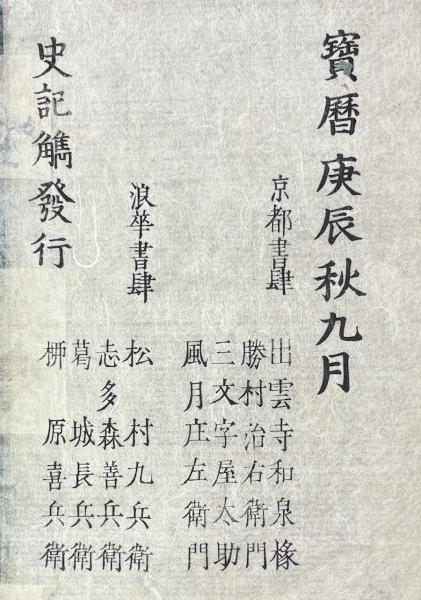 寶曆庚辰秋九月
京都書肆
出雲寺和泉椽
勝村治右衛門
三文字屋太助
風月庄左衛門
浪華書肆
松村九兵衛
志多森善兵衛
葛城長兵衛
柳原喜兵衛
史記觽發行